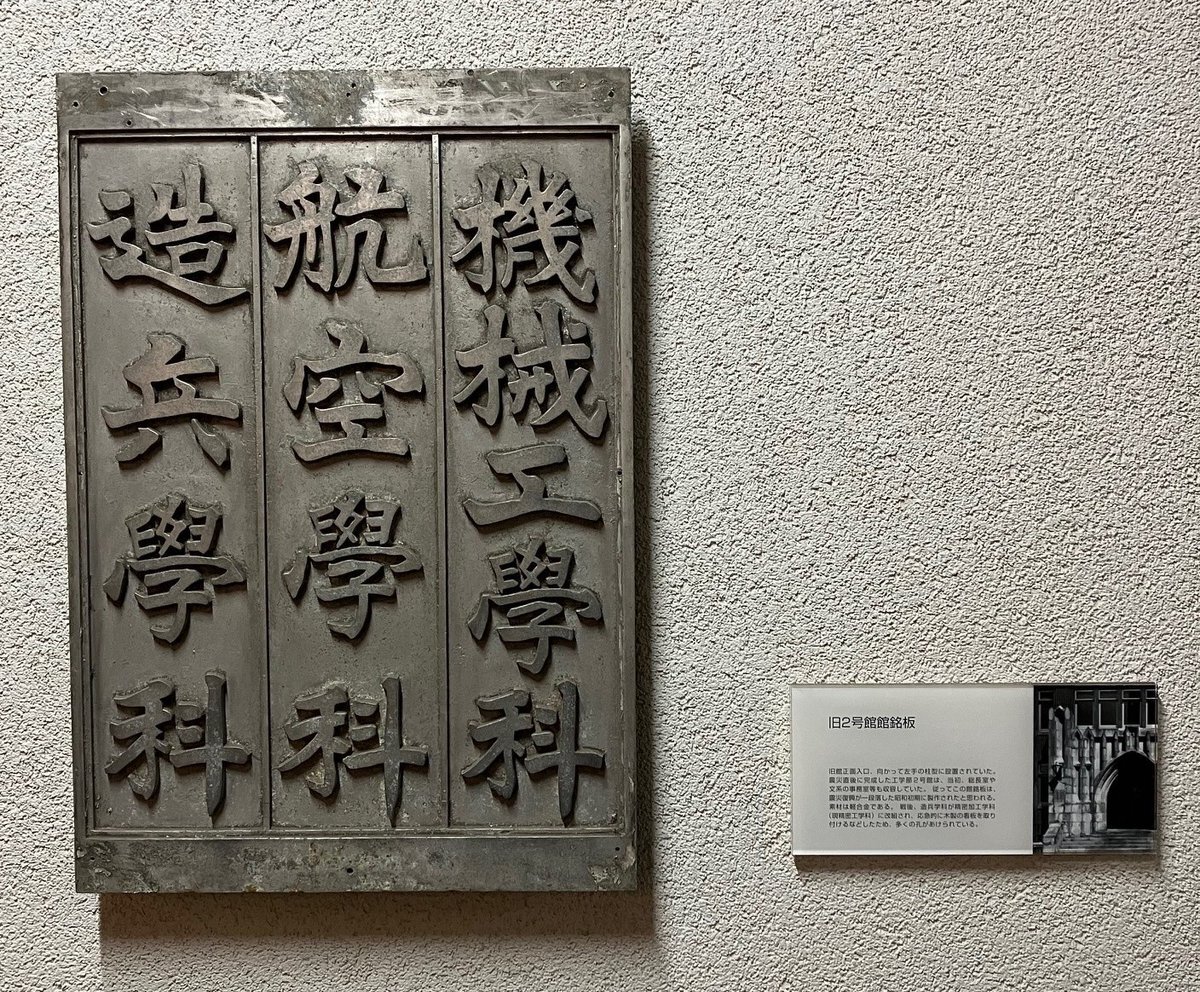 機械工學科
航空學科
造兵學科
旧2号館館銘板
旧館正面入口、向かって左手の柱型に設置されていた。
震災直後に完成した工学部2号館は、当初、総長室や
文系の事務室等も収容していた。従ってこの館銘板は、
震災復興が一段落した昭和初期に製作されたと思われる。
素材は軽合金である。戦後、造兵学科が精密加工学科
(現精密工学科)に改組され、応急的に木製の看板を取り
付けるなどしたため、多くの孔があけられている。